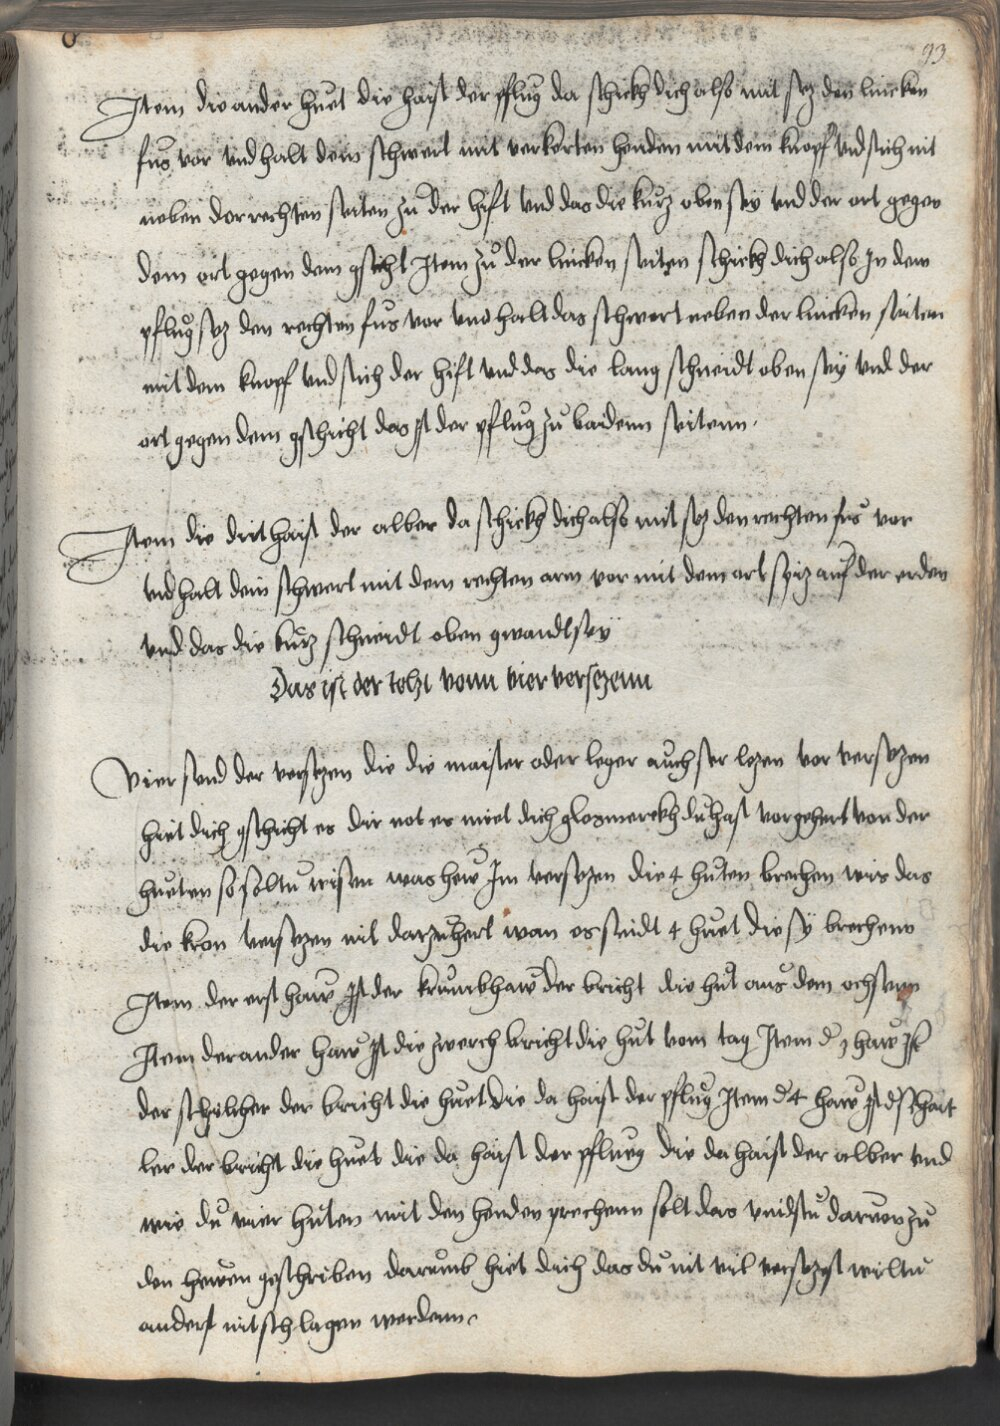 93
Item die ander huet die haist der pflug da schickh dich also mit sez den lincken
fus vor vnd halt dein schwert mit verkerten henden mit dem knopf vnd sich nit
neben der rechten seiten zu der hift vnd das die kurz oben sey vnd der ort gegen
dem ort gegen dem gsicht Item zu der lincken seiten schickh dich also In dem
pflug sez den rechten fus vor vnd halt das schwert neben der lincken seiten
mit dem knopf vnd sich der hift vnd das die lang schneidt oben sey vnd der
ort gegen dem gschicht das Ist der pflug zu baidenn seitenn.
Item die drit haist der alber da schickh dich also mit sez den rechten fus vor
vnd halt dein schwert mit dem rechten arm vor mit dem ort spiz auf der erden
vnd das die kurz schneidt oben gwandt sey
Das ist der text vonn vier versezenn
Vier send der versezen die die maister oder leger auch ser lezen vor versezen
hiet dich gschicht es dir not er miet dich glosmerckh du hast vorgehert von der
hueten so soltu wisen was hew Im versezen die 4 huten brechen wis das
die kron versezen nit darzu hert wan es seindt 4 huet die sy brechenn
Item der erst haw Ist der krumbhaw der bricht die hut aus dem ochsenn
Item der ander haw Ist die zwerch bricht die hut vom tag Item d 3 haw Ist
der schilcher der bricht die huet die da haist der pflug Item d 4 haw Ist d schait
ler der bricht die huet die da haist der pflueg die da haist der alber vnd
wie du vier huten mit den henden prechenn solt das vindstu darvor zu
den hewen geschriben darumb hiet dich das du nit vil versezest wiltu
anderst nit schlagen werdenn.